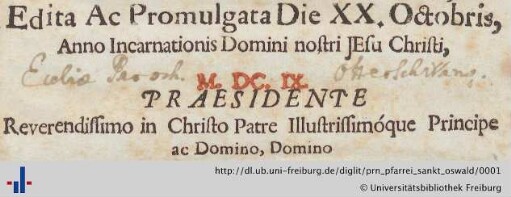 Edita Ac Promulgata Die XX. Octobris,
Anno Incarnationis Domini noſtri JEſu Chriſti,
M. DC. IX.
PRAESIDENTE
Reverendiſſimo in Chriſto Patre Illuſtriſſimóque Principe
ac Domino, Domino
http://dl.ub.uni-freiburg.de/diglit/prn_pfarrei_sankt_oswald/0001
© Universitätsbibliothek Freiburg